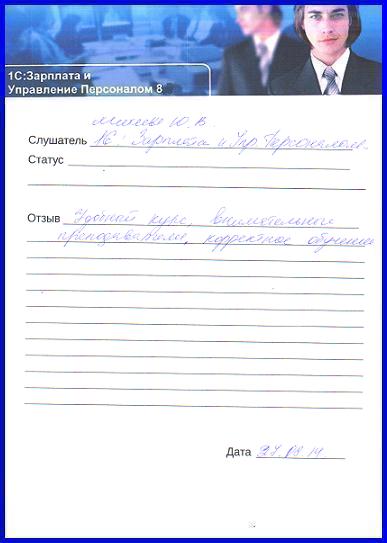 1С:Зарплата и
Управление Персоналом 8
Михеева Ю.В.
Слушатель 1С: Зарплата и Упр. Персоналом
Статус
Отзыв Удобный курс, внимательные
преподаватели, корректное обучение
Дата 27.08.14